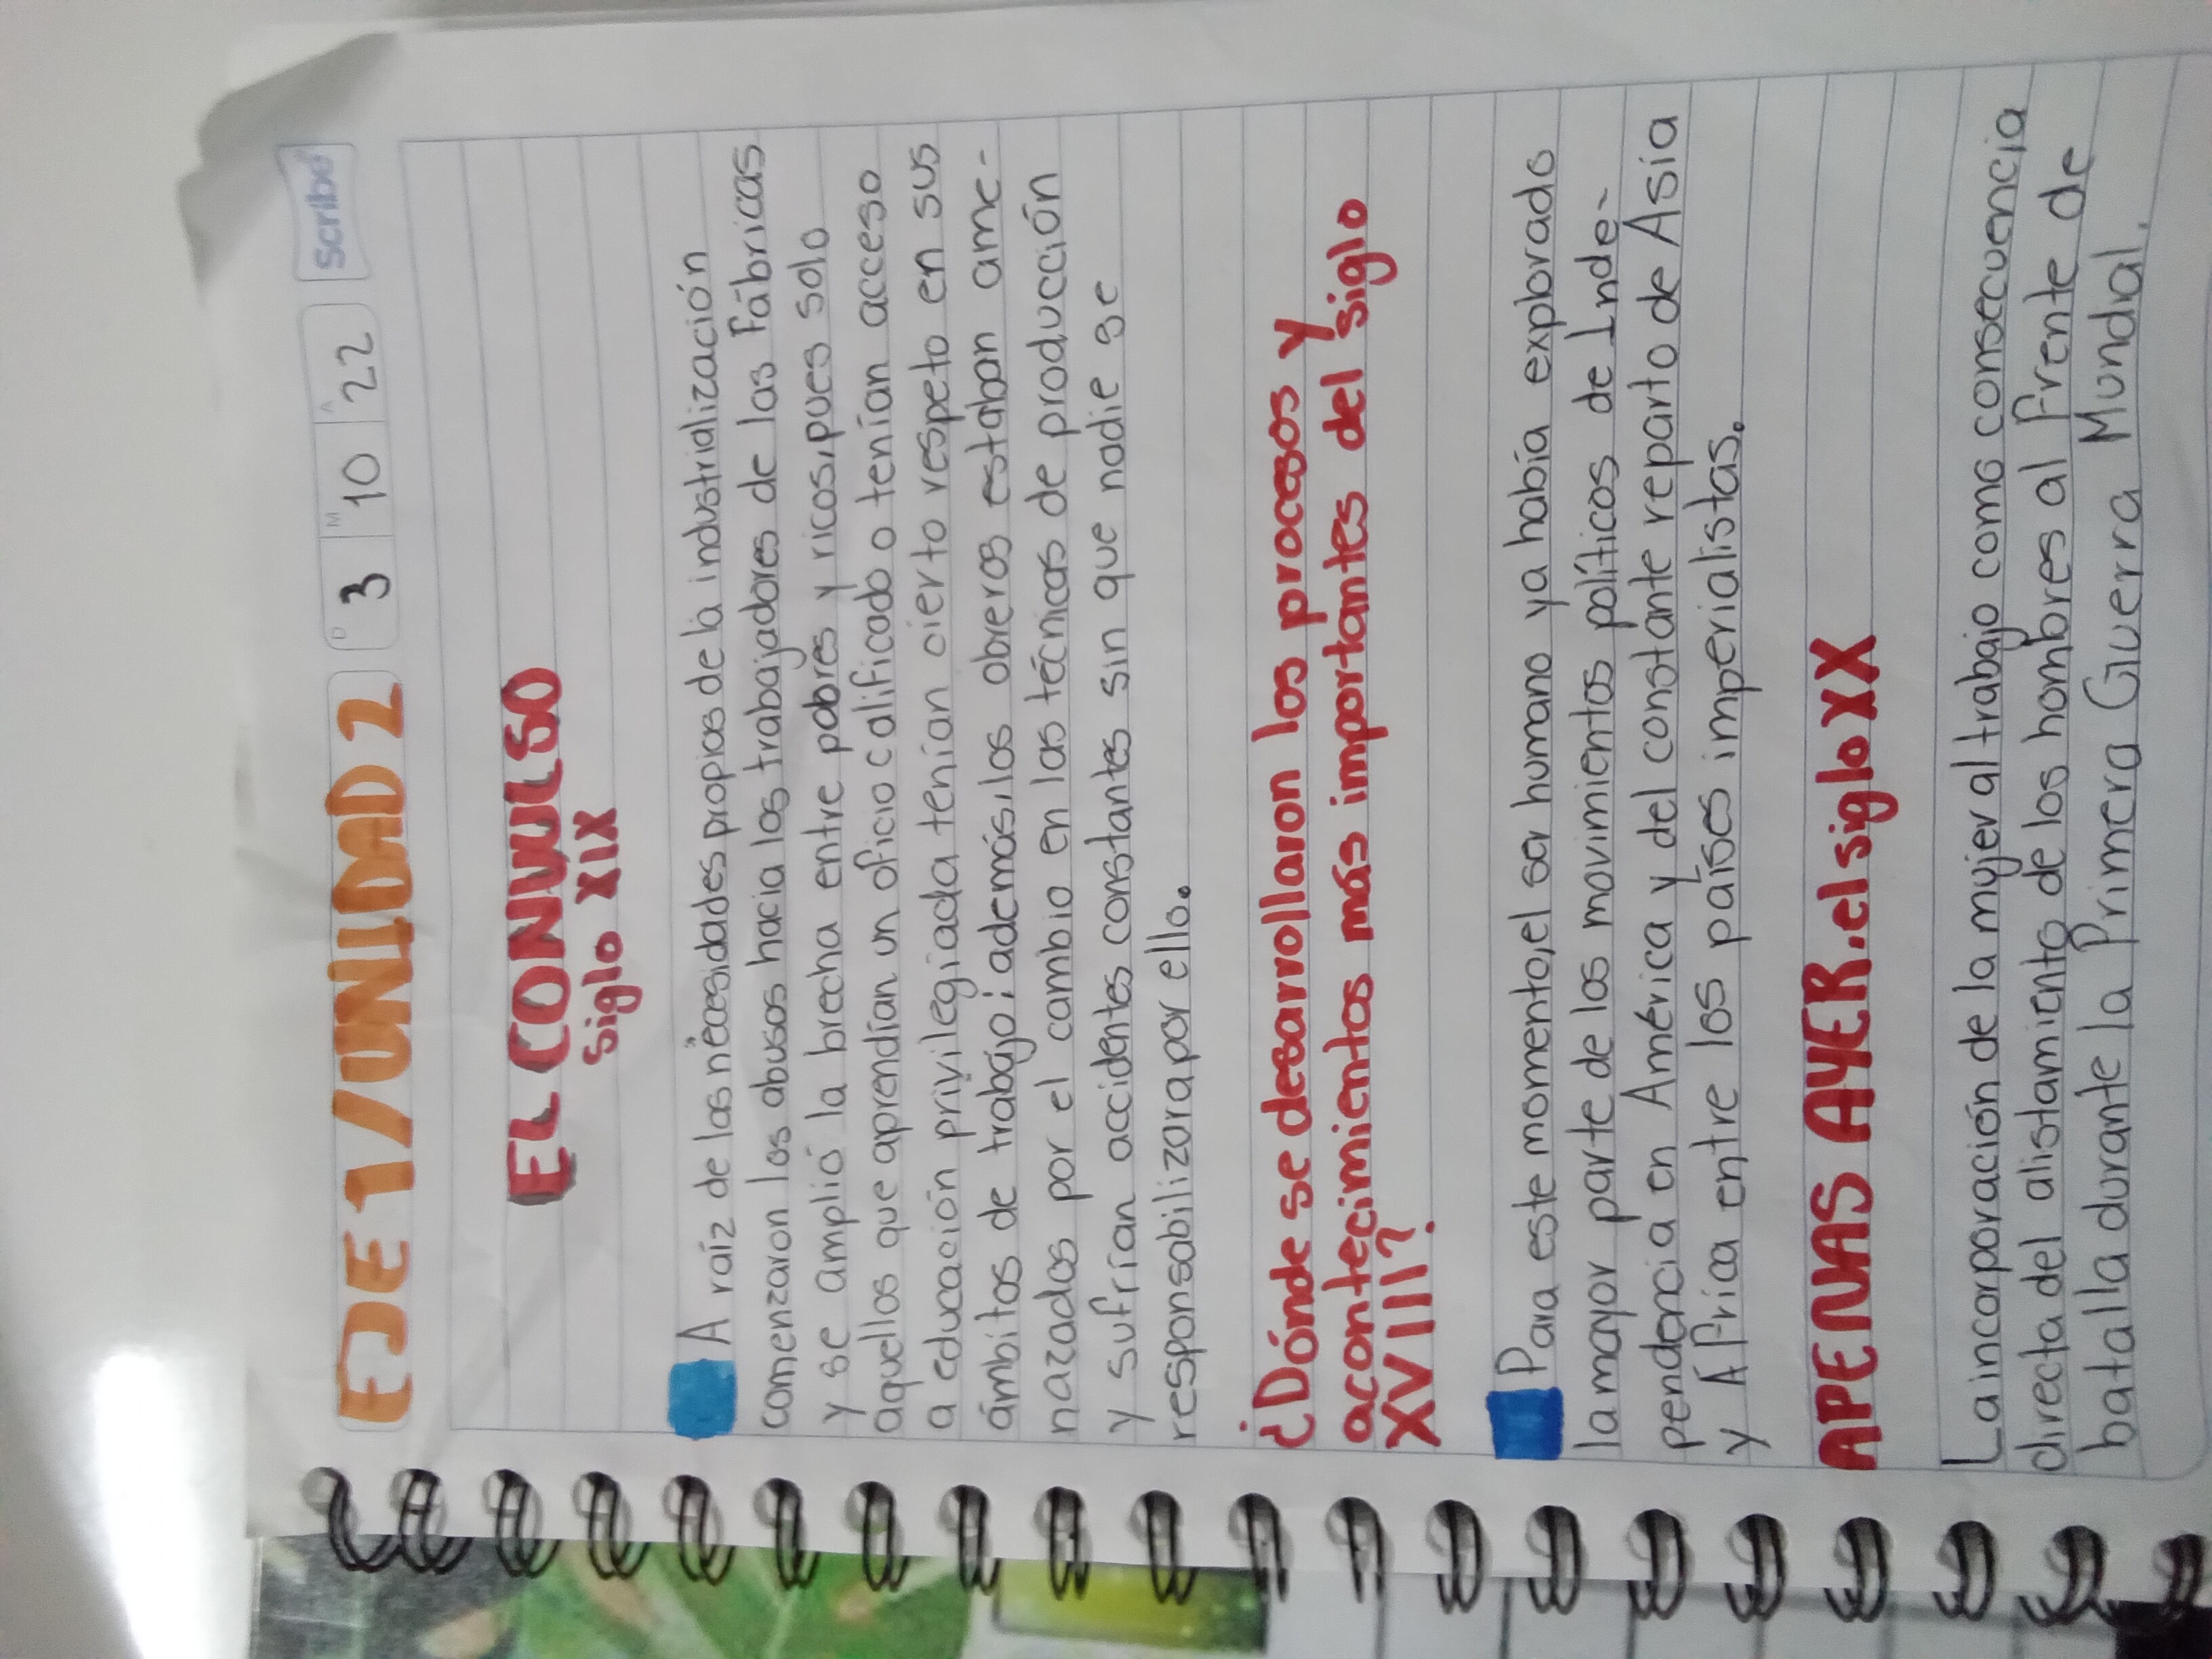 EJE 1 / UNIDAD 2 D 3 M 10 A 22 scribe
EL CONVULSO
siglo XIX
A raíz de las necesidades propias de la industrialización
comenzaron los abusos hacia los trabajadores de las Fábricas
y se amplió la brecha entre pobres y ricos, pues solo
aquellos que aprendían un oficio calificado o tenían acceso
a educación privilegiada tenían cierto respeto en sus
ámbitos de trabajo; además, los obreros estaban ame-
nazados por el cambio en las técnicas de producción
y sufrían accidentes constantes sin que nadie se
responsabilizara por ello.
¿Dónde se desarrollaron los procesos y
acontecimientos más importantes del siglo
XVIII?
Para este momento, el ser humano ya había explorado
la mayor parte de los movimientos políticos de Inde-
pendencia en América y del constante reparto de Asia
y Africa entre los países imperialistas.
APENAS AYER. el siglo XX
La incorporación de la mujer al trabajo como consecuencia
directa del alistamiento de los hombres al frente de
batalla durante la Primera Guerra Mundial.